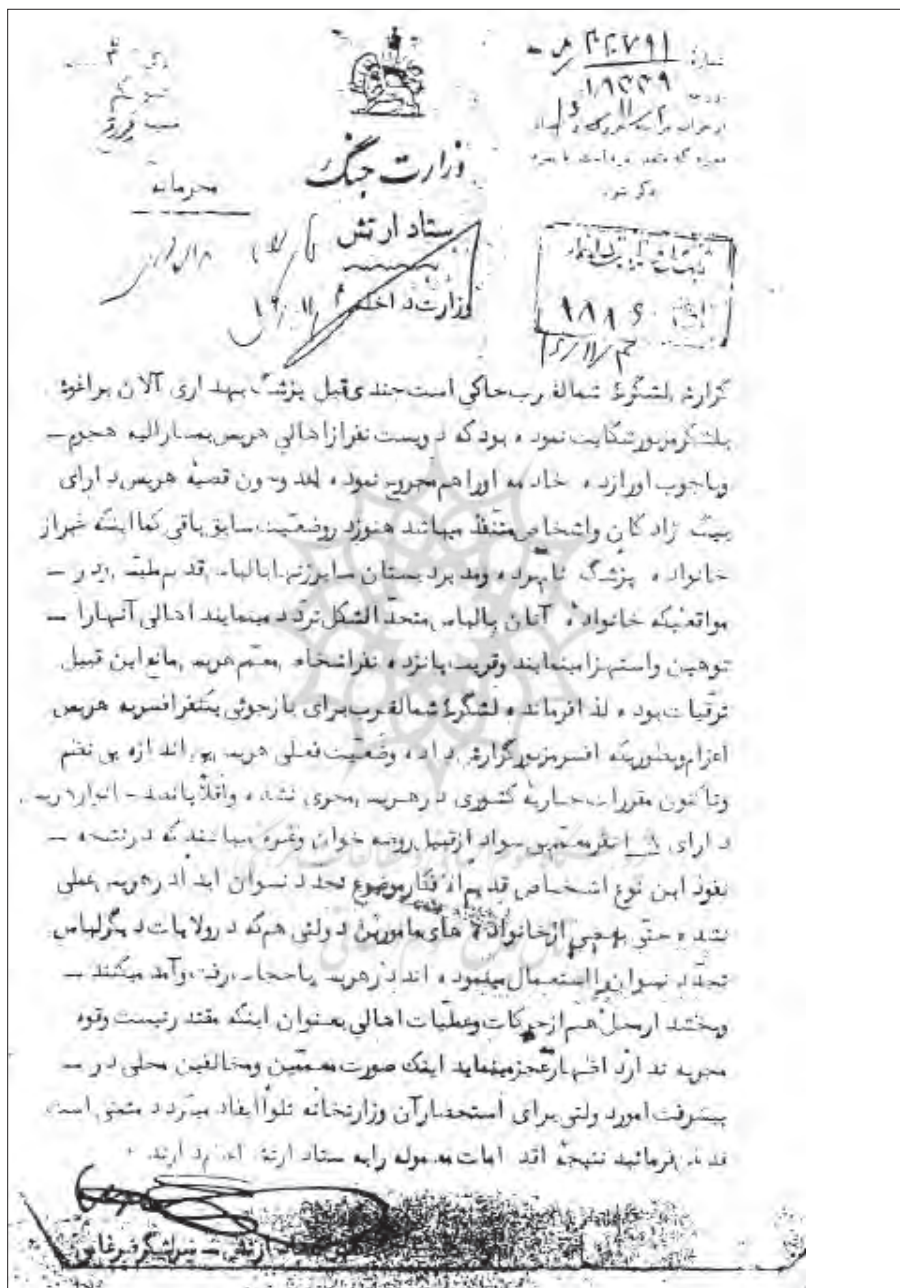 شماره ۲۲۷۹۱
محرمانه
وزارت جنگ
ستاد ارتش
وزارت داخله
ذکر شود
۹۸۸۶
گزارش لشگر ۴ شمالغرب حاکی است چندی قبل پزشگ بهداری آلان براغوش
بلشگر مزبور شکایت نموده بود که دویست نفر از اهالی هریس بمشارالیه هجوم ـ
و باچوب او را زده خادمه او را هم مجروح نموده اند و چون قصبه هریس دارای
بیگ زادگان و اشخاص متنفذ میباشد هنوز در وضعیت سابق باقی کما اینکه غیر از
خانواده پزشگ نامبرده و مدیر دبستان سایر زنها بالباس قدیم ملبس و در ـ
مواقعیکه خانواده آنان بالباس متحد الشکل تردد مینمایند اهالی آنها را ـ
توهین و استهزا مینمایند و قریب پانزده نفر اشخاص معمم هریس مانع این قبیل
ترقیات بوده لذا فرمانده لشگر ۴ شمالغرب برای بازجوئی یکنفر افسر به هریس
اعزام و بطوریکه افسر مزبور گزارش داده وضعیت فعلی هریس بی اندازه بی نظم
و تاکنون مقررات جاریه کشوری در هریس مجری نشده و اقلاً پانصد خانوار هریس
دارای نفر معمم بی سواد از قبیل روضه خوان و غیره میباشند که در نتیجه ـ
نفوذ این نوع اشخاص قدیم افکار موضوع تجدد نسوان ابداً در هریس عملی
نشده حتی بعضی از خانواده های مامورین دولتی هم که در ولایات دیگر لباس
تجدد نسوان را استعمال مینموده اند در هریس باحجاب رفت و آمد میکنند ـ
و بخشدار محل هم از حرکات و عملیات اهالی بعنوان اینکه مقتدر نیست و قوه
مجریه ندارد اظهار عجز مینماید اینک صورت معممین و مخالفین محلی در ـ
پیشرفت امور دولتی برای استحضار آن وزارتخانه تلواً ایفاد میگردد متمنی است
قدغن فرمائید نتیجه اقدامات معموله را به ستاد ارتش اعلام دارند .
ستاد ارتش ـ سرلشگر ضرغامی